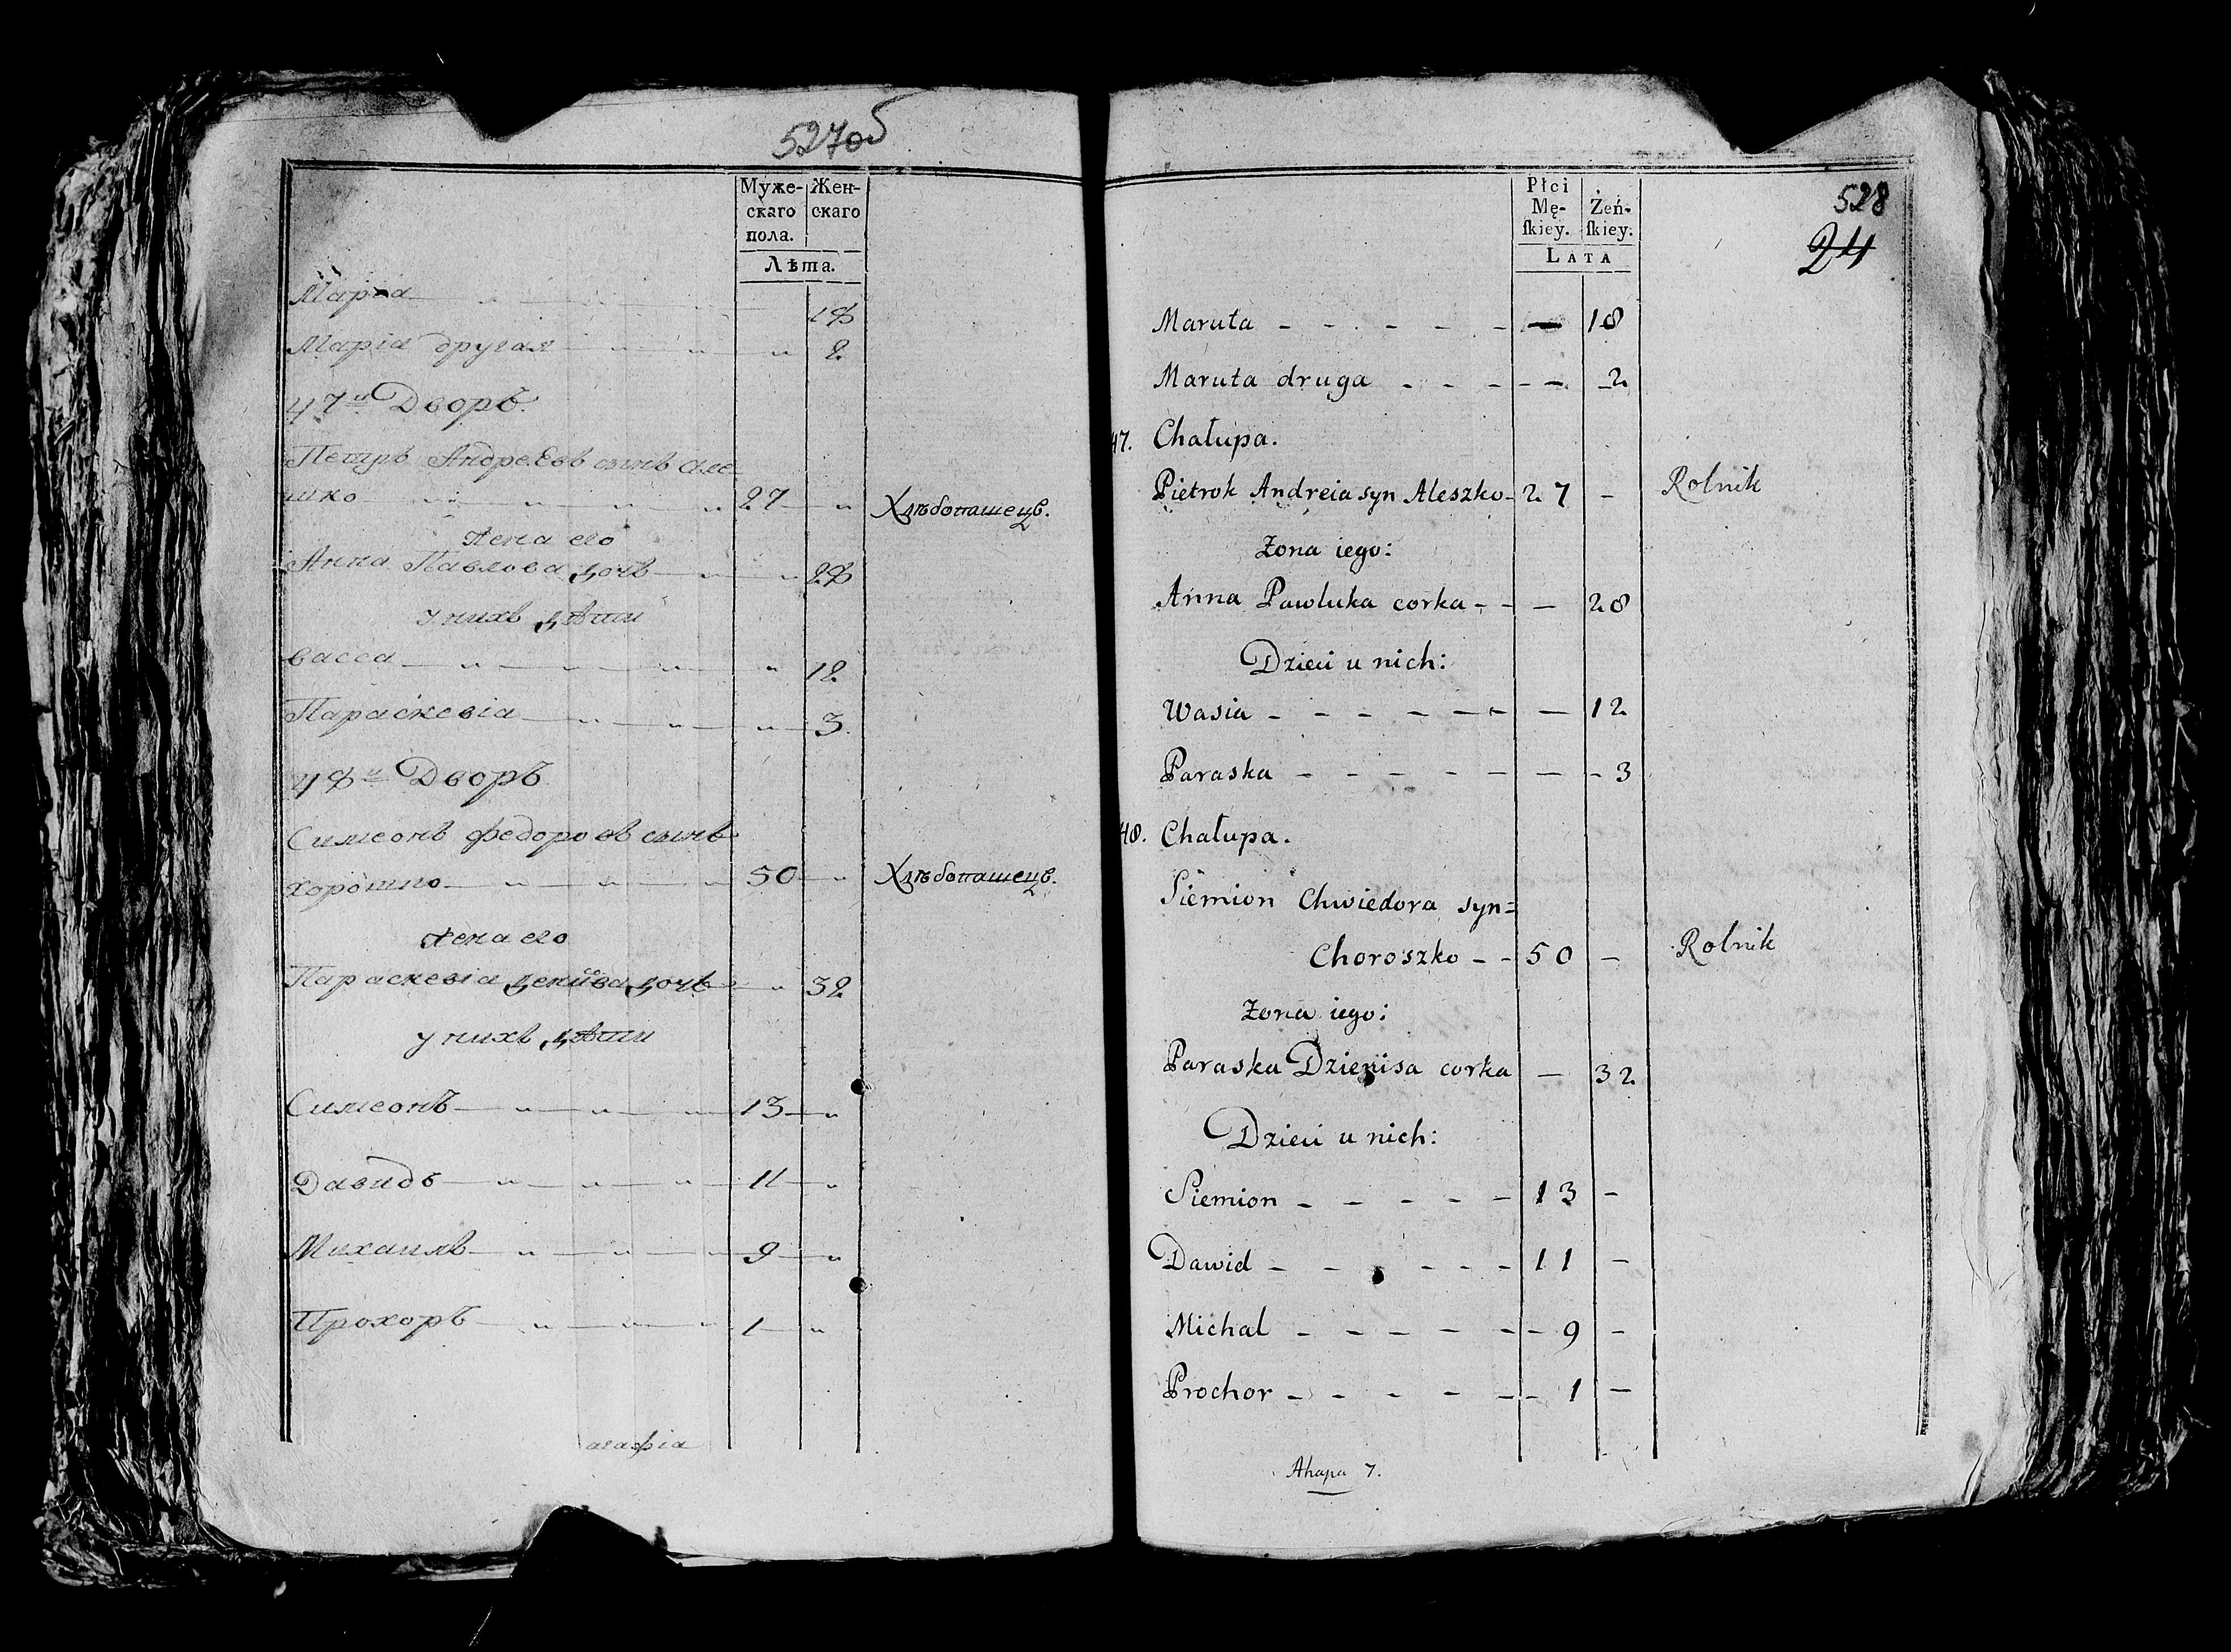 527об
Муже- Жен-
скаго скаго
пола.
Лѣта.
Марѳа 18
Маріа другая 2
47й Дворъ.
Петръ Андреевъ сынъ Але-
шко 27 Хлѣбопашецъ.
Жена его
Анна Павлова дочь 28
У нихъ дѣти
Васса 12
Параскевіа 3
48й Дворъ
Симеонъ Федоровъ сынъ
Хорошко 50 Хлѣбопашецъ.
Жена его
Параскевіа дочь 32
У нихъ дѣти
Симеонъ 13
Давидъ 11
Михаилъ 9
Прохоръ 1
агафіа
Płci
Mę- Żeń-
skiey. skiey.
LATA
528
24
Maruta - - - - - - — 18
Maruta druga - - - - — 2
47. Chałupa.
Pietrok Andreia syn Aleszko - 27 - Rolnik
Żona iego:
Anna Pawluka corka - - — 28
Dzieci u nich:
Wasia - - - - - - — 12
Paraska - - - - - - — - 3
48. Chałupa.
Siemion Chwiedora syn=
Choroszko - - 50 - Rolnik
Żona iego:
Paraska Dzienisa corka — 32
Dzieci u nich:
Siemion - - - - - 13 -
Dawid - - - - - - 11 -
Michał - - - - - - 9 -
Prochor - - - - - - 1 —
Ahapa 7.